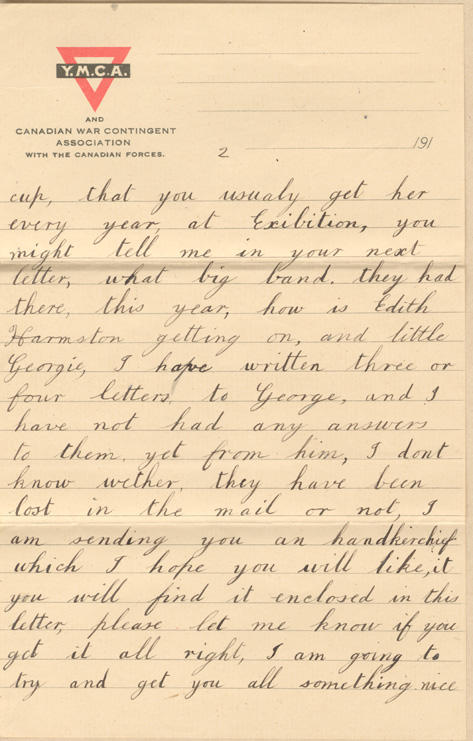 Y.M.C.A.
AND
CANADIAN WAR CONTINGENT
ASSOCIATION
WITH THE CANADIAN FORCES.
2 191
cup, that you usualy get her
every year, at Exibition, you
might tell me in your next
letter, what big band. they had
there, this year, how is Edith
Harmston getting on, and little
Georgie, I have written three or
four letters, to George, and I
have not had any answers
to them, yet from him, I dont
know wether, they have been
lost in the mail or not, I
am sending you an handkirchief
which I hope you will like, it
you will find it enclosed in this
letter, please let me know if you
get it all right, I am going to
try and get you all something nice